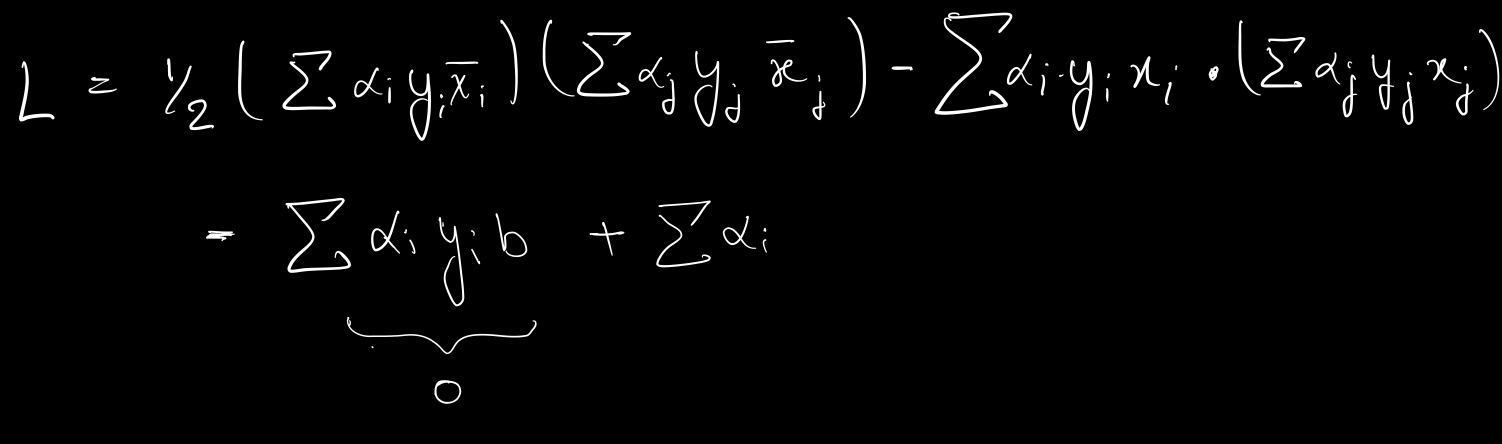 L = 1/2 ( Σ αᵢ yᵢ x̄ᵢ ) ( Σ αⱼ yⱼ x̄ⱼ ) - Σ αᵢ yᵢ xᵢ · ( Σ αⱼ yⱼ xⱼ )
- Σ αᵢ yᵢ b + Σ αᵢ
0